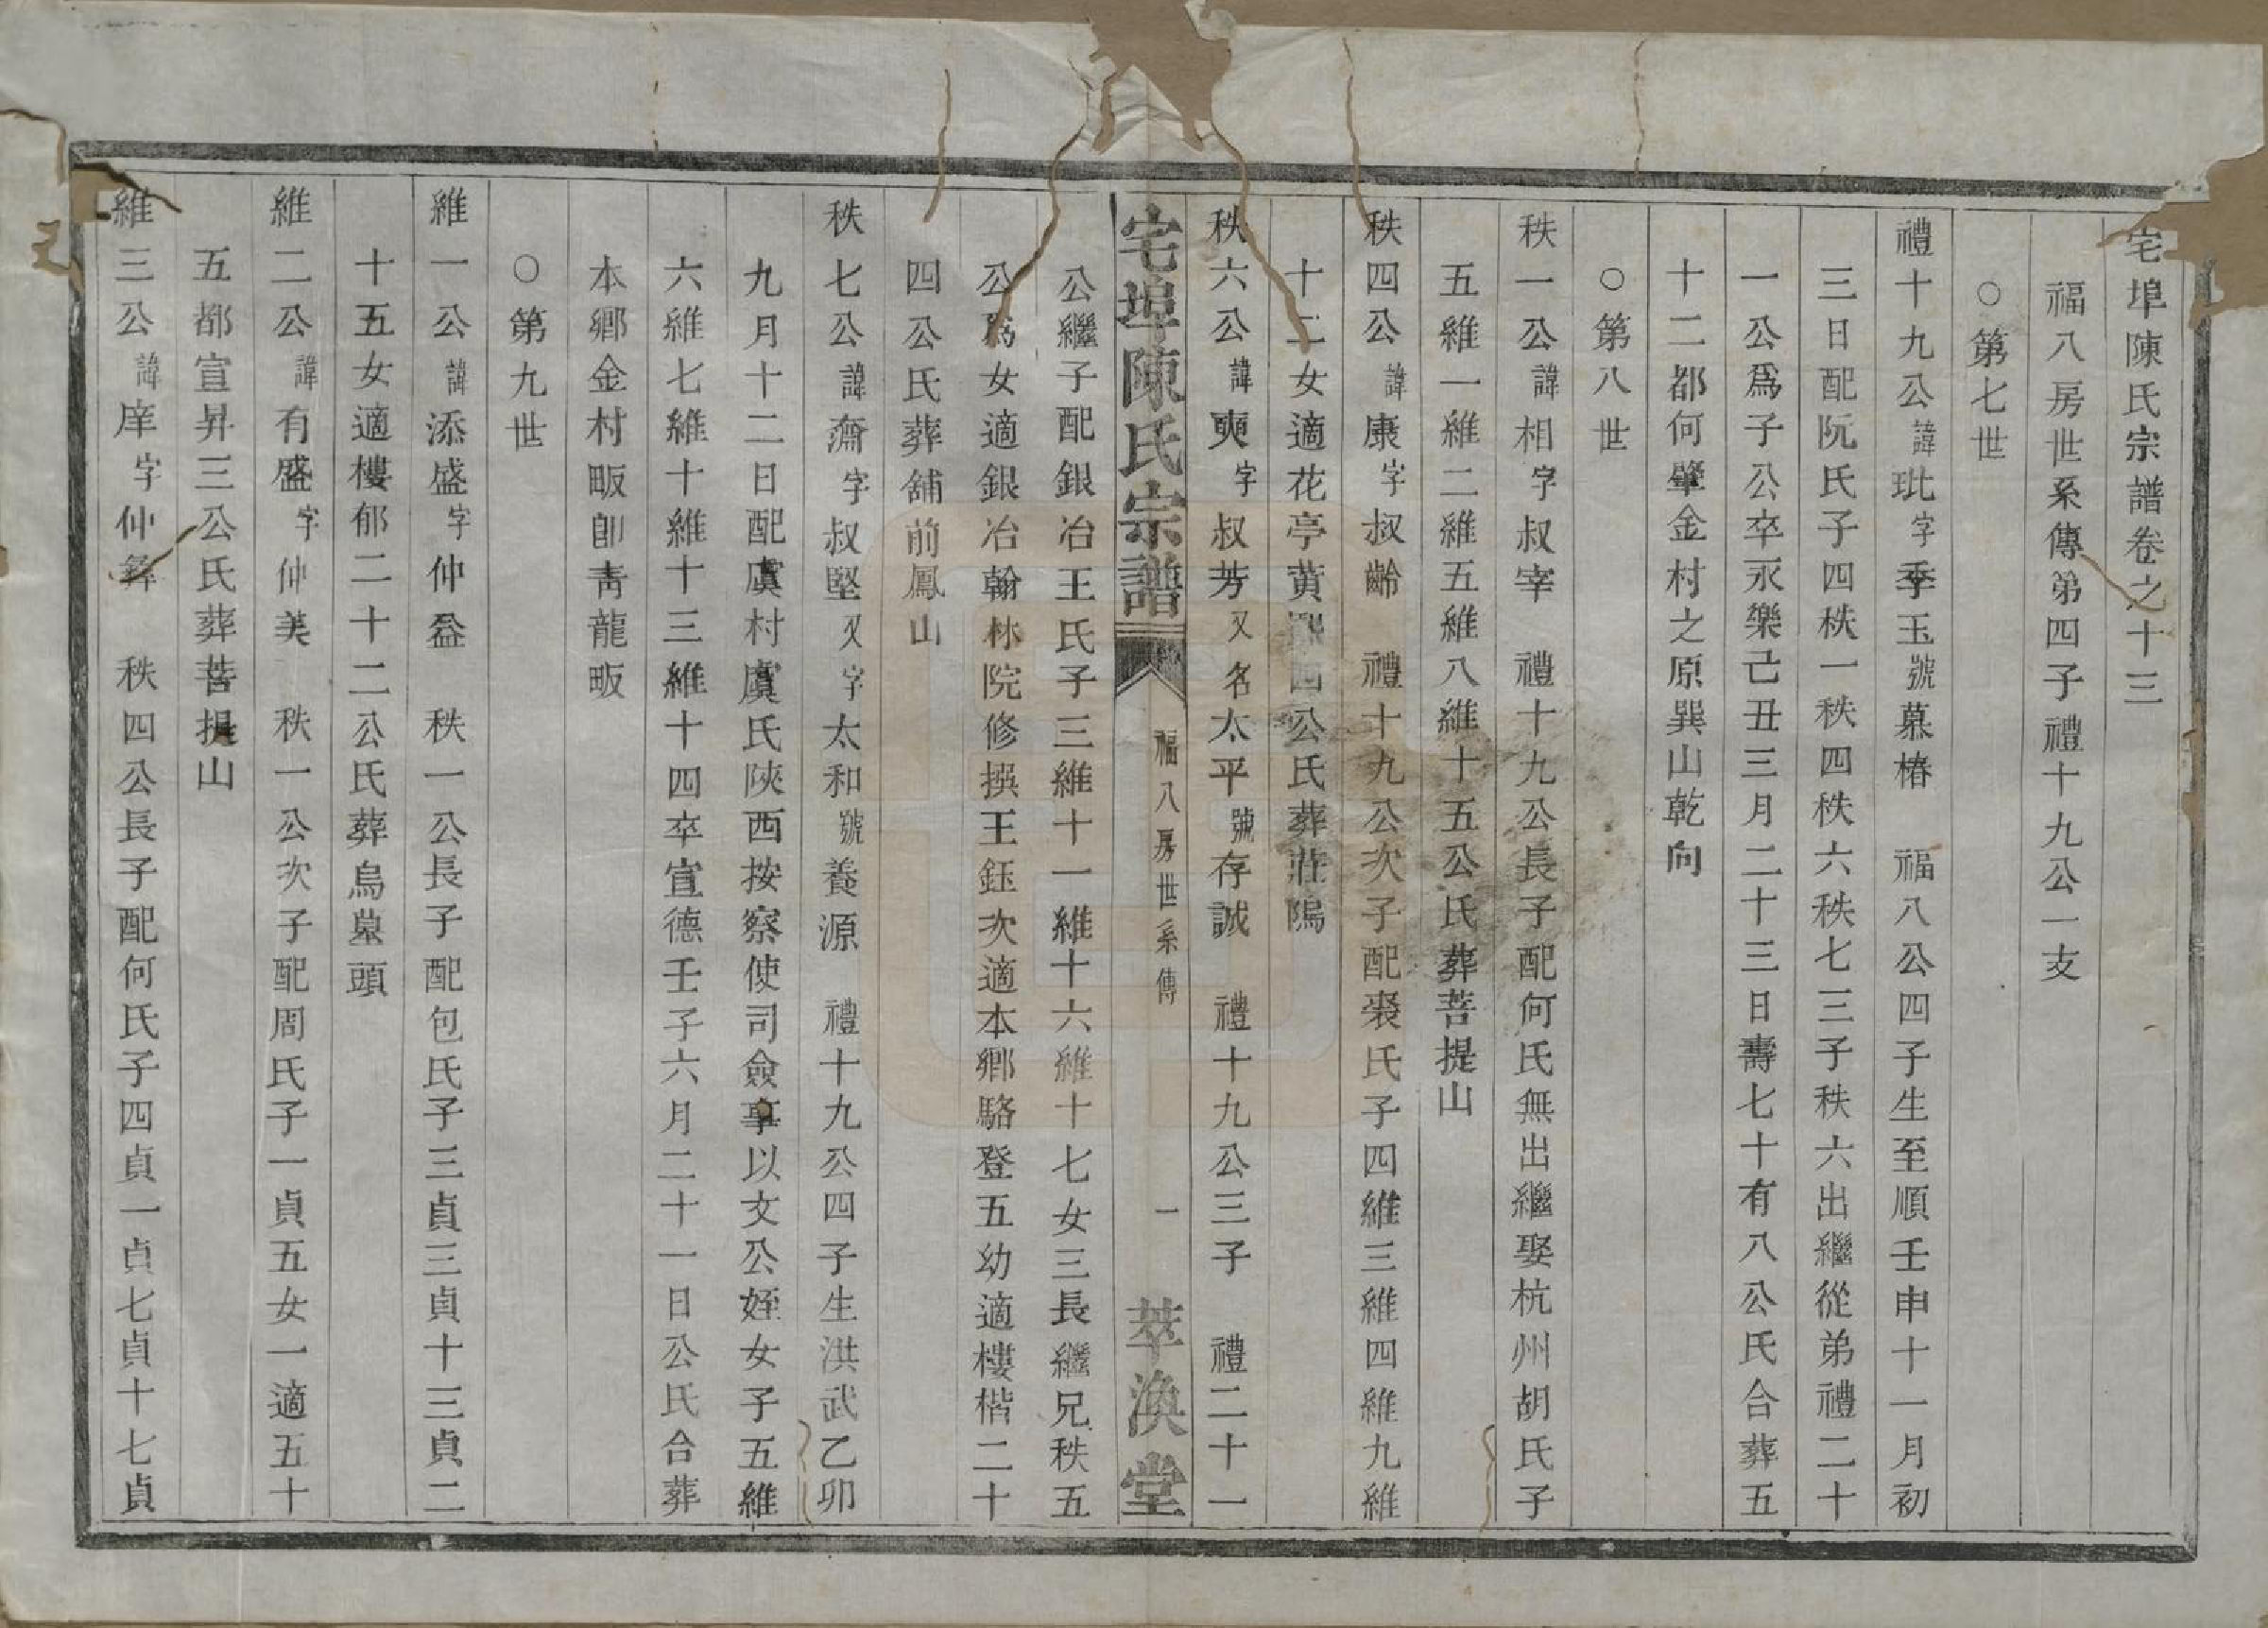 宅埠陳氏宗譜卷之十三
福八房世系傳弟四子禮十九公一支
○第七世
禮十九公諱玭字季玉號慕椿　福八公四子生至順壬申十一月初
三日配阮氏子四秩一秩四秩六秩七三子秩六出繼從弟禮二十
一公爲子公卒永樂己丑三月二十三日壽七十有八公氏合葬五
十二都何肇金村之原巽山乾向
○第八世
秩一公諱相字叔宰　禮十九公長子配何氏無出繼娶杭州胡氏子
五維一維二維五維八維十五公氏葬菩提山
秩四公諱康字叔齡　禮十九公次子配裘氏子四維三維四維九維
十二女適花亭黄四公氏葬莊隖
秩六公諱奭字叔芳又名太平號存誠　禮十九公三子　禮二十一
宅埠陳氏宗譜　福八房世系傳　一　萃渙堂
公繼子配銀冶王氏子三維十一維十六維十七女三長繼兄秩五
公爲女適銀冶翰林院修撰王鈺次適本鄉駱登五幼適樓楷二十
四公氏葬舖前鳳山
秩七公諱齋字叔堅又字太和號養源　禮十九公四子生洪武乙卯
九月十二日配虞村虞氏陝西按察使司僉事以文公姪女子五維
六維七維十維十三維十四卒宣德壬子六月二十一日公氏合葬
本鄉金村畈卽靑龍畈
○第九世
維一公諱添盛字仲益　秩一公長子配包氏子三貞三貞十三貞二
十五女適樓郁二十二公氏葬烏墓頭
維二公諱有盛字仲美　秩一公次子配周氏子一貞五女一適五十
五都宣昇三公氏葬菩提山
維三公諱庠字仲彝　秩四公長子配何氏子四貞一貞七貞十七貞